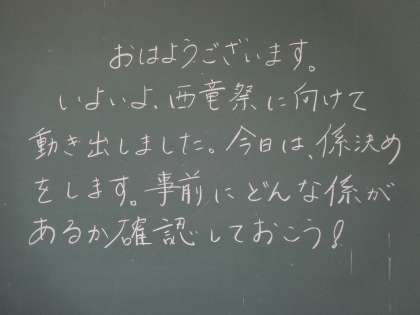 おはようございます。
いよいよ、西竜祭に向けて
動き出しました。今日は、係決め
をします。事前にどんな係が
あるか確認しておこう!